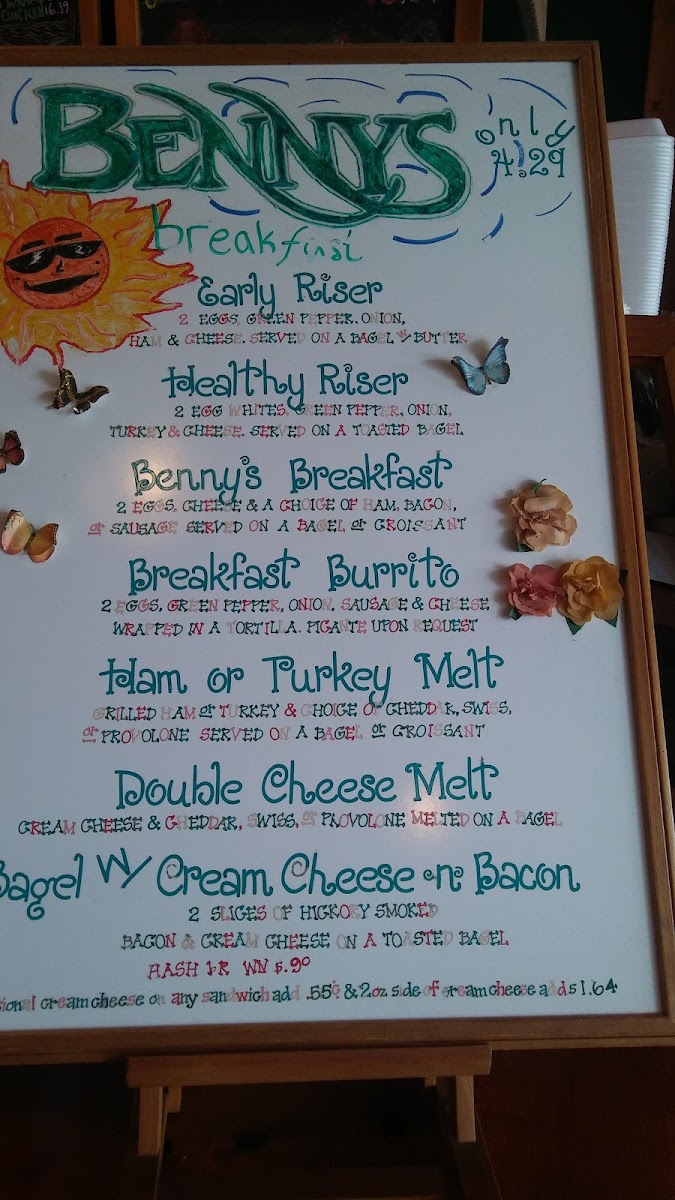 BENNYS
only
4.29
breakfast
Early Riser
2 EGGS, GREEN PEPPER, ONION,
HAM & CHEESE. SERVED ON A BAGEL W/ BUTTER
Healthy Riser
2 EGG WHITES, GREEN PEPPER, ONION,
TURKEY & CHEESE. SERVED ON A TOASTED BAGEL
Benny's Breakfast
2 EGGS, CHEESE & A CHOICE OF HAM, BACON,
or SAUSAGE SERVED ON A BAGEL or CROISSANT
Breakfast Burrito
2 EGGS, GREEN PEPPER, ONION, SAUSAGE & CHEESE
WRAPPED IN A TORTILLA. PICANTE UPON REQUEST
Ham or Turkey Melt
GRILLED HAM or TURKEY & CHOICE OF CHEDDAR, SWISS,
or PROVOLONE SERVED ON A BAGEL or CROISSANT
Double Cheese Melt
CREAM CHEESE & CHEDDAR, SWISS, or PROVOLONE MELTED ON A BAGEL
Bagel W/ Cream Cheese n Bacon
2 SLICES OF HICKORY SMOKED
BACON & CREAM CHEESE ON A TOASTED BAGEL
HASH BR WN 5.90
sional cream cheese on any sandwich add .55¢ & 2oz side of cream cheese adds 1.64